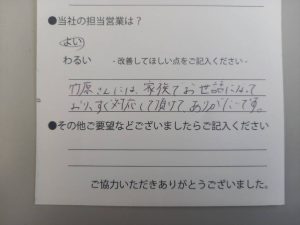 ●当社の担当営業は？
よい
わるい　-改善してほしい点をご記入ください-
竹原さんには、家族でお世話になって
おり、すぐ対応して頂けてありがたいです。
●その他ご要望などございましたらご記入ください
ご協力いただきありがとうございました。